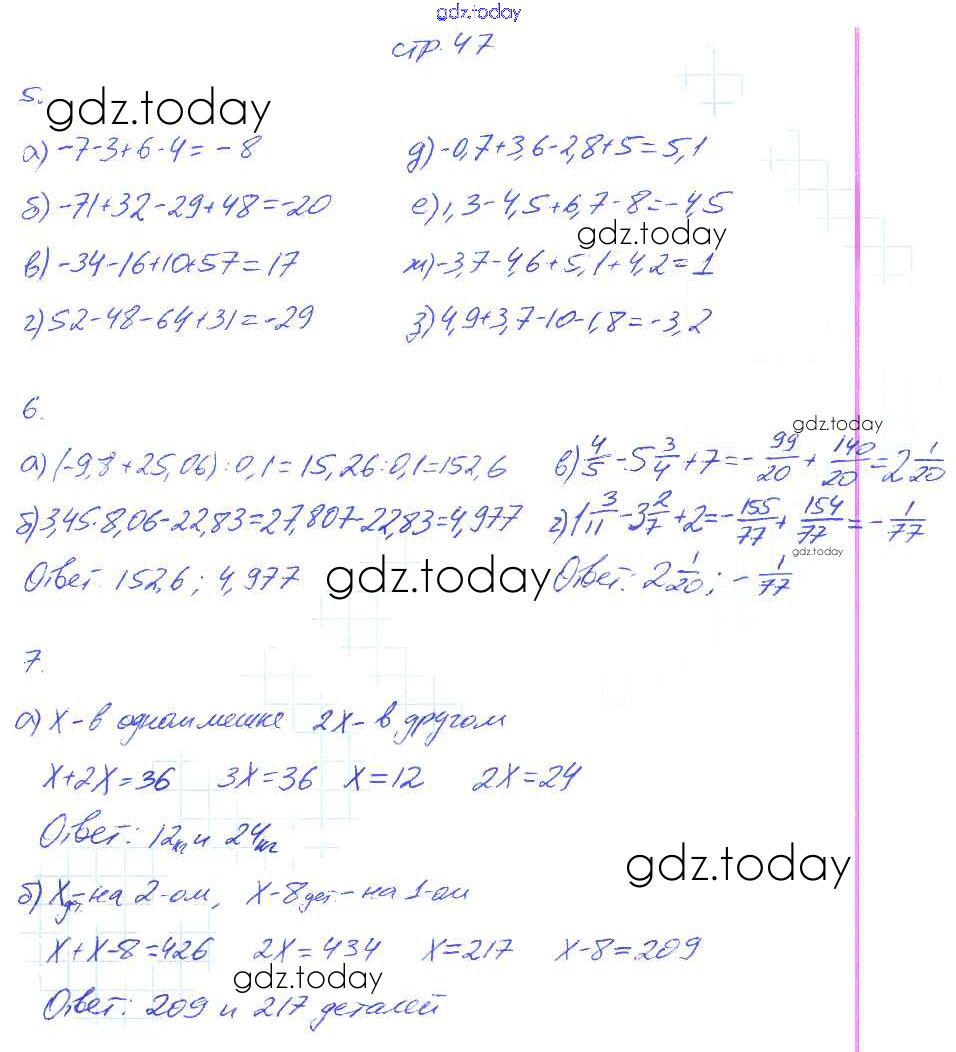 gdz.today
стр. 47
5. gdz.today
а) -7-3+6-4= -8
д) -0,7+3,6-2,8+5=5,1
б) -71+32-29+48=-20
е) 1,3-4,5+6,7-8=-4,5
gdz.today
в) -34-16+10+57=17
ж) -3,7-4,6+5,1+4,2=1
г) 52-48-64+31=-29
з) 4,9+3,7-10-1,8=-3,2
6.
gdz.today
а) (-9,8+25,06):0,1=15,26:0,1=152,6
в) 4/5 - 5 3/4 + 7 = - 99/20 + 140/20 = 2 1/20
б) 3,45·8,06-22,83=27,807-22,83=4,977
г) 1 3/11 - 3 2/7 + 2 = - 155/77 + 154/77 = - 1/77
gdz.today
Ответ: 152,6; 4,977
gdz.today
Ответ: 2 1/20; - 1/77
7.
а) х - в одном мешке 2х - в другом
х+2х=36 3х=36 х=12 2х=24
Ответ: 12кг и 24кг
gdz.today
б) х дет. - на 2-ом, х-8 дет. - на 1-ом
х+х-8=426 2х=434 х=217 х-8=209
gdz.today
Ответ: 209 и 217 деталей